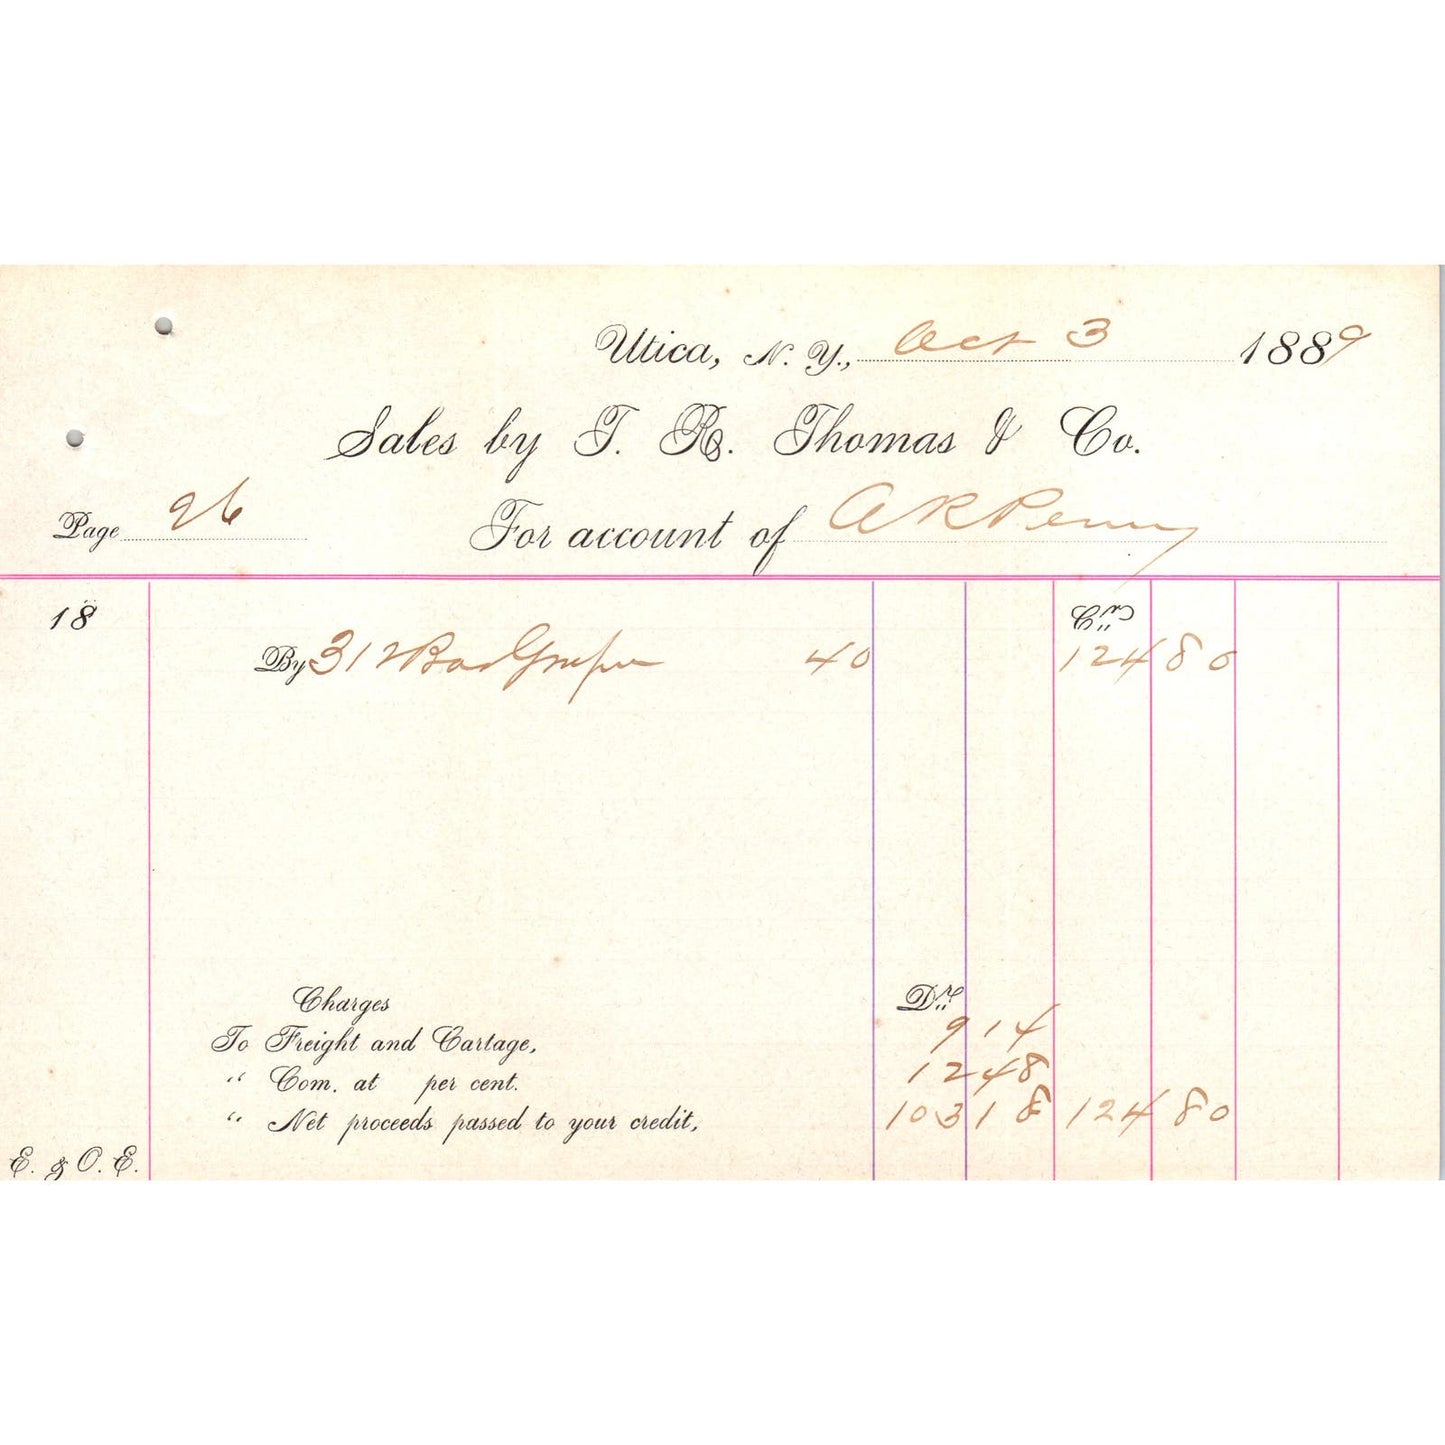 Utica, N. Y., Oct 3 1889
Sales by T. R. Thomas & Co.
Page 26 For account of A R Penny
18 Cr
By 312 Bas Grapes 40 124 80
Charges Dr
To Freight and Cartage, 9 14
" Com. at per cent. 12 48
" Net proceeds passed to your credit, 103 18 124 80
E. & O. E.